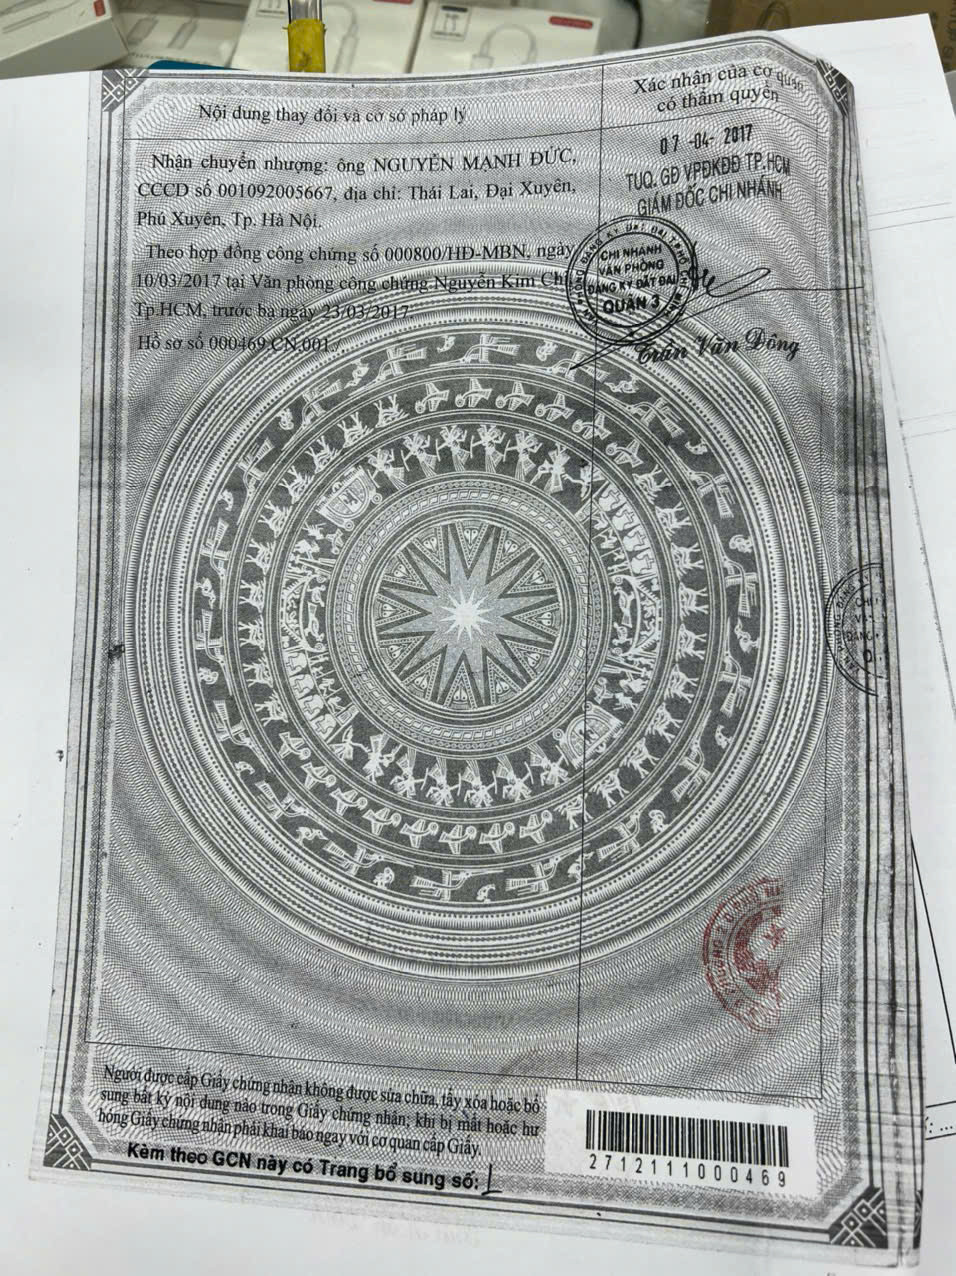 Nội dung thay đổi và cơ sở pháp lý
Xác nhận của cơ quan
có thẩm quyền
Nhận chuyển nhượng: ông NGUYỄN MẠNH ĐỨC,
CCCD số 001092005667, địa chỉ: Thái Lai, Đại Xuyên,
Phú Xuyên, Tp. Hà Nội.
Theo hợp đồng công chứng số 000800/HĐ-MBN, ngày
10/03/2017 tại Văn phòng công chứng Nguyễn Kim Chi
Tp.HCM, trước bạ ngày 23/03/2017.
Hồ sơ số 000469.CN.001./
07 -04- 2017
TUQ. GĐ VPĐKĐĐ TP.HCM
GIÁM ĐỐC CHI NHÁNH
CHI NHÁNH
VĂN PHÒNG
ĐĂNG KÝ ĐẤT ĐAI
QUẬN 3
Trần Văn Đông
Người được cấp Giấy chứng nhận không được sửa chữa, tẩy xóa hoặc bổ
sung bất kỳ nội dung nào trong Giấy chứng nhận; khi bị mất hoặc hư
hỏng Giấy chứng nhận phải khai báo ngay với cơ quan cấp Giấy.
Kèm theo GCN này có Trang bổ sung số: 1
2712111000469